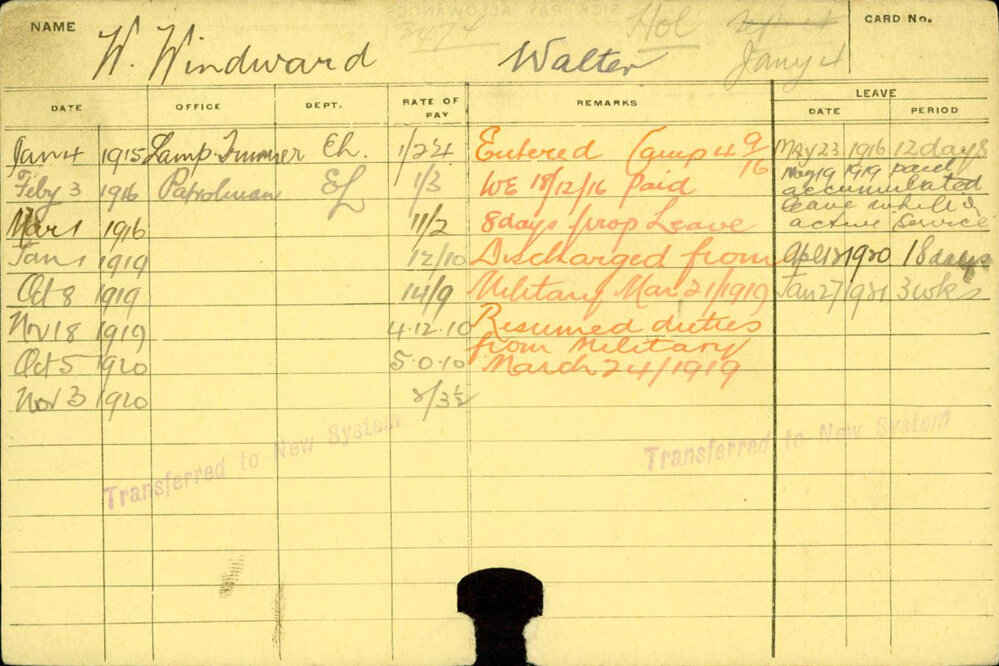 NAME W. Windward Walter CARD No.
3474 Hol Jany 4
DATE OFFICE DEPT. RATE OF PAY REMARKS LEAVE
DATE PERIOD
Jan 4 1915 Lamp Trimmer El. Entered Camp 4 9/16 May 23 1916 12 days
Feby 3 1916 Patrolman EL 1/3 WE 18/12/16 Paid May 19 1919 paid
accumulated
Mar 1 1916 11/2 8 days prop Leave leave whilst
active service
Jan 1 1919 12/10 Discharged from Apl 12 1920 18 days
Oct 8 1919 14/9 Military Mar 21/1919 Jan 27 1921 3 wks
Nov 18 1919 4.12.10 Resumed duties
from Military
Oct 5 1920 5.0.10 March 24/1919
Nov 3 1920 2/3½
Transferred to New System
Transferred to New System